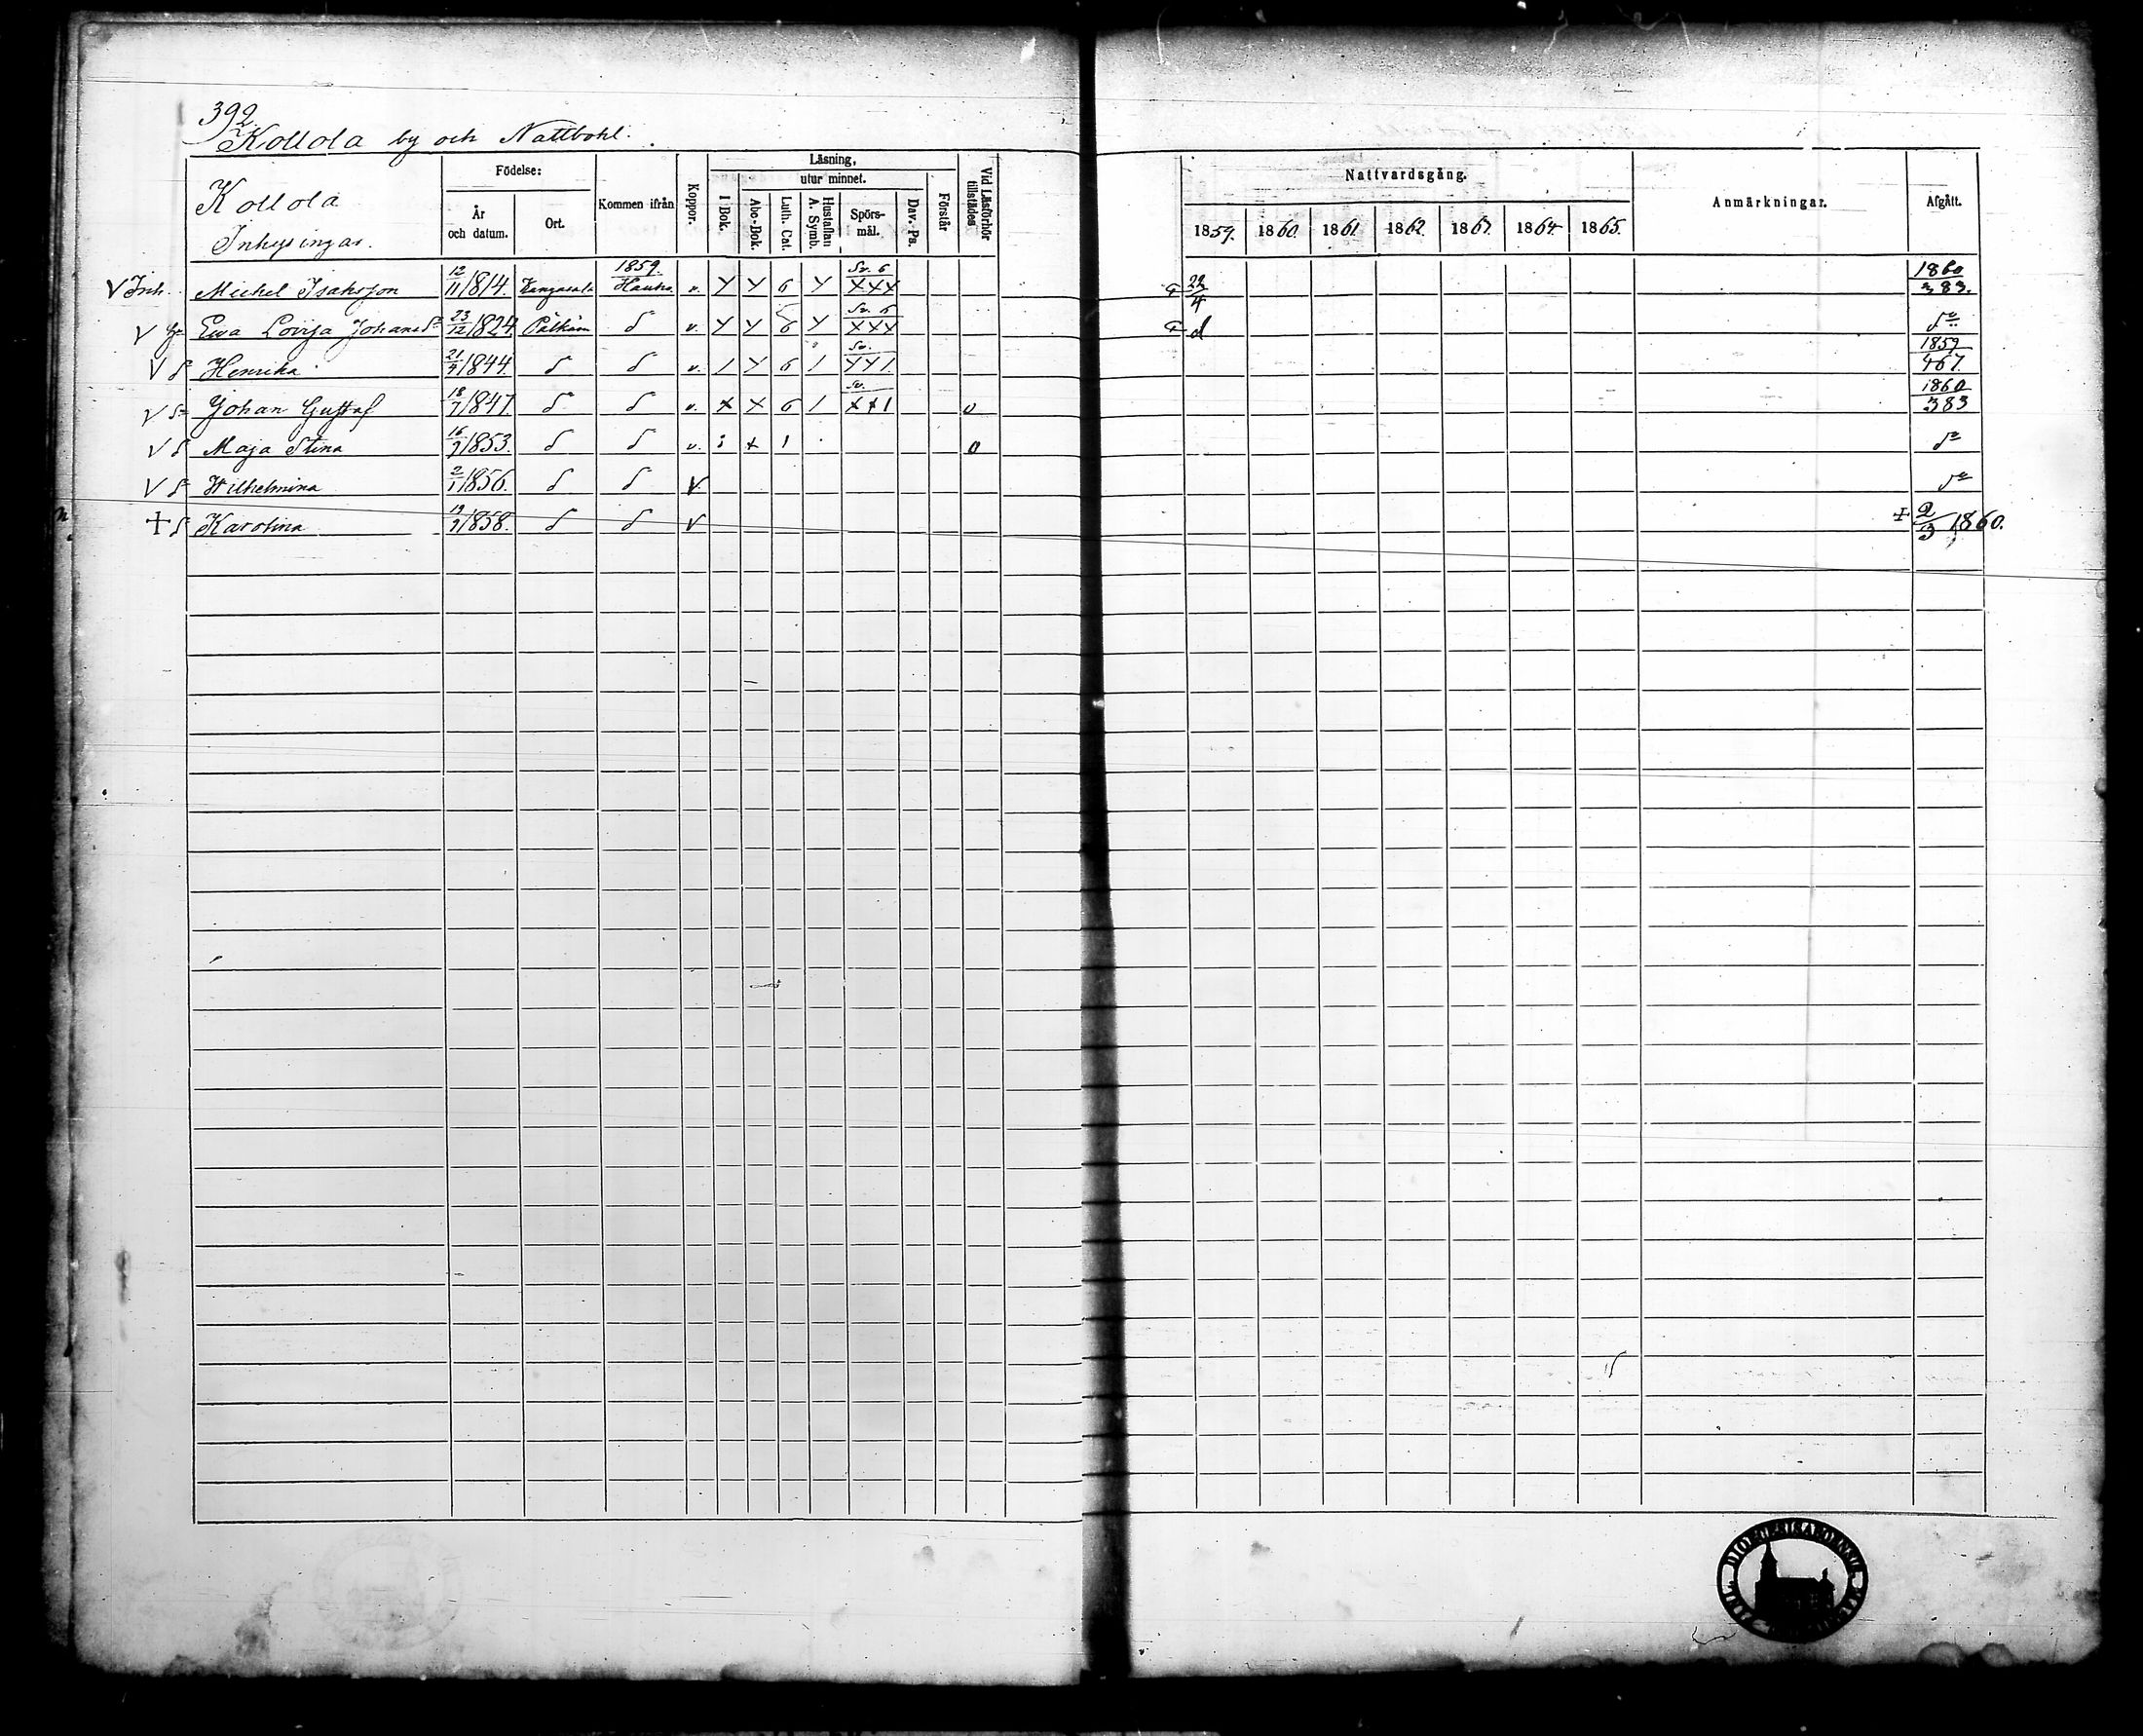 392.
Kollola by och Nattbohl.
Kollola
Inhysingar.
Födelse:
År och datum.
Ort.
Kommen ifrån
Koppor.
Läsning,
utur minnet.
I Bok.
Abc-Bok.
Luth. Cat.
Hustaflan A. Symb.
Spörs-mål.
Dav. Ps.
Förstår
Vid Läsförhör tillstädes
Nattvardsgång.
1859. 1860. 1861 1862. 1863. 1864 1865.
Anmärkningar.
Afgått.
V Inh. Michel Isaksson 12/11 1814. Kangasala 1859. Hauho. v. Y Y 6 Y Sv. 6 XXX 22/4 1860 383.
V Ewa Lovisa Johansdr 23/12 1824. Pälkäne d v. Y Y 6 Y Sv. 6 XXX d do
V d Henrika 1844. d d v. / Y 6 / Sv. YY1 1859 467.
V d Johan Gustaf 18/7 1847. d d v. X X 6 / Sv. XX1 0 1860 383
V d Maja Stina 1853. d d v. X 1 0 do
V d Wilhelmina 2/1 1856. d d V do
+ d Karolina 1858. d d V + 2/3 1860.